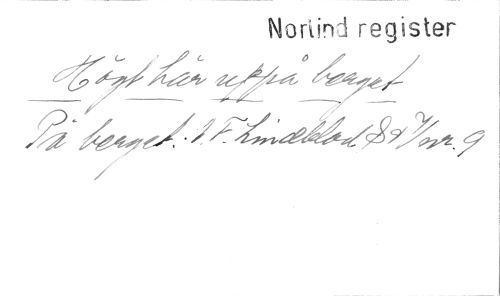 Norlind register
Högt här uppå berget
På berget. A. F. Lindblad S & T/nr. 9